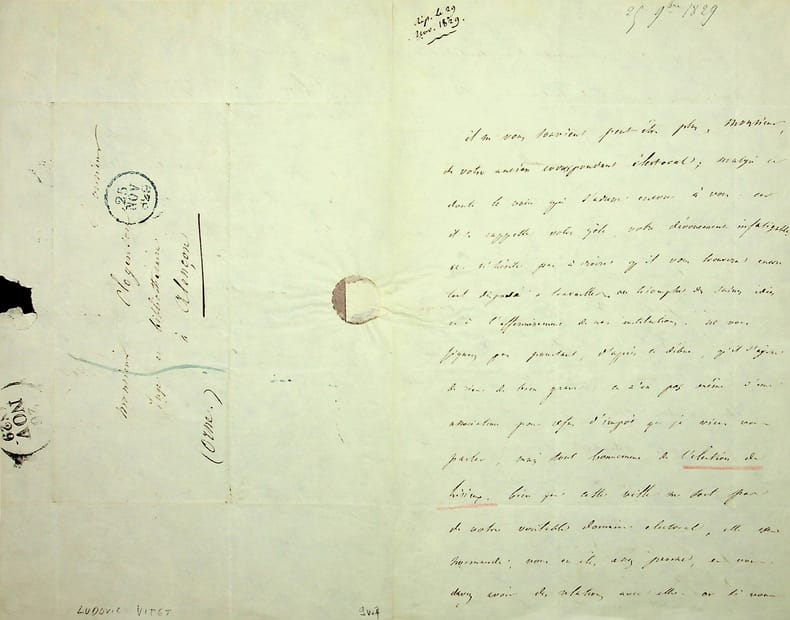 rép. le 29
Nov. 1829.
25 9bre 1829
il ne vous souvient peut-être plus, Monsieur,
de votre ancien correspondant électoral; malgré ce
doute le voici qui s'adresse encore à vous car
il se rappelle votre zèle votre dévouement infatigable
et n'hésite pas à croire qu'il vous trouvera encore
tout disposé à travailler au triomphe des saines idées
et à l'affermissement de nos institutions. ne vous
figurez pas pourtant, d'après ce début, qu'il s'agisse
de rien de bien grave. ce n'est pas même d'une
association pour refus d'impôt que je viens vous
parler, mais tout bonnement de l'élection de
Lisieux. bien que cette ville ne soit pas
de votre véritable domaine électoral, elle est
normande, vous en êtes assez proche, et vous
devez avoir des relations avec elle. or si vous
Monsieur
Monsieur Clogenson
Juge et Bibliothécaire
à Alençon
(Orne.)
25
NOV
1829
NOV
LUDOVIC VITET